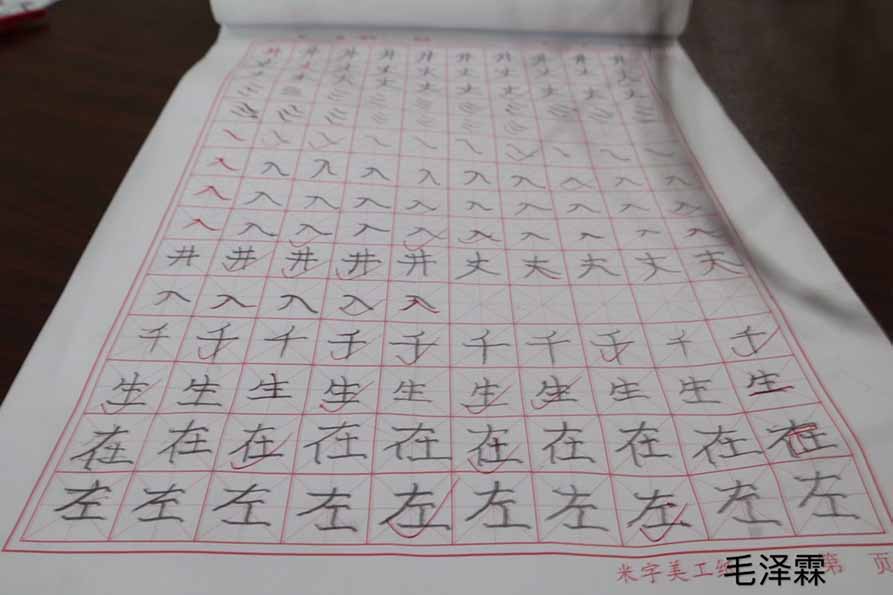 井 井 井 井 井 井 井 井 井 井
入 入 入 入 入 入 入 入 入 入
入 入 入 入 入 入 入 入 入 入
入 入 入 入 入 入 入 入 入 入
井 井 井 井 井 丈 丈 丈 丈 丈
入 入 入 入 入
千 千 千 千 千 千 千 千 千 千
生 生 生 生 生 生 生 生 生 生
在 在 在 在 在 在 在 在 在 在
左 左 左 左 左 左 左 左 左 左
米字美工 毛泽霖 第 页